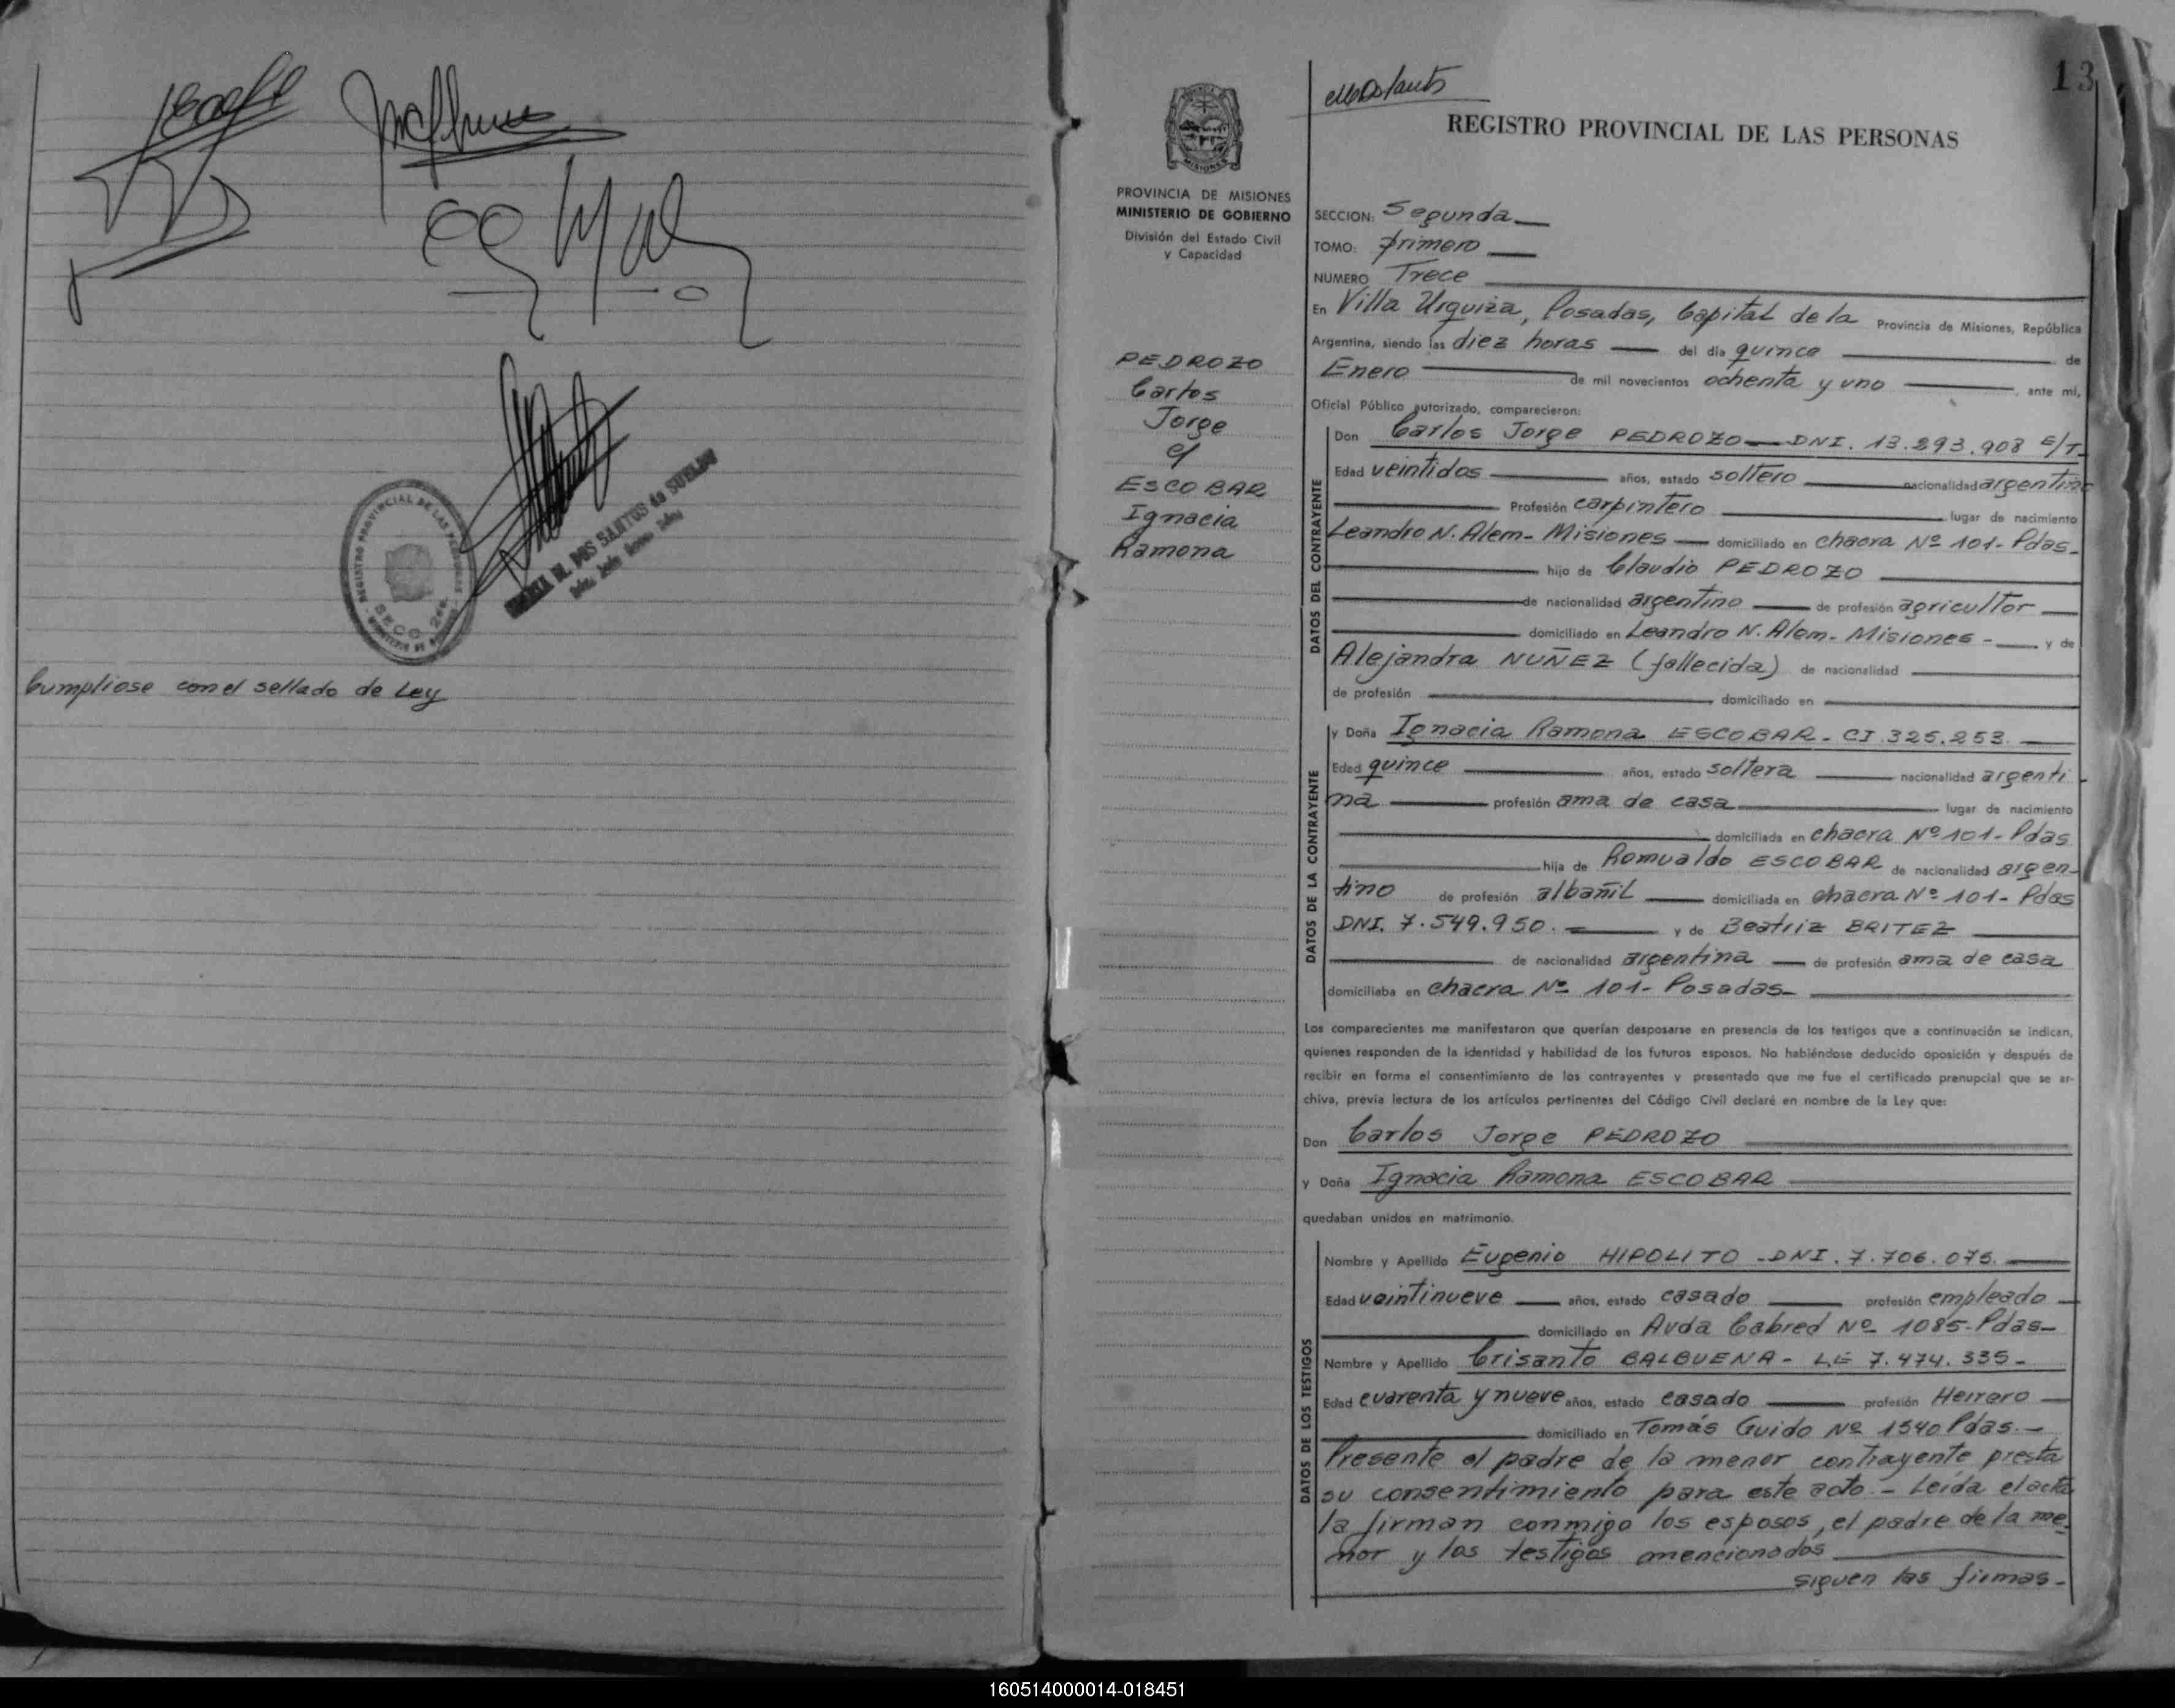 REGISTRO PROVINCIAL DE LAS PERSONAS
SECC. 2da.
MARIA M. DOS SANTOS de
Cumpliose con el sellado de Ley
13
PROVINCIA DE MISIONES
MINISTERIO DE GOBIERNO
División del Estado Civil
y Capacidad
PEDROZO
Carlos
Jorge
c/
ESCOBAR
Ignacia
Ramona
REGISTRO PROVINCIAL DE LAS PERSONAS
SECCION: Segunda
TOMO: primero
NUMERO Trece
En Villa Urquiza, Posadas, Capital de la Provincia de Misiones, República
Argentina, siendo las diez horas del día quince de
Enero de mil novecientos ochenta y uno, ante mi,
Oficial Público autorizado, comparecieron:
DATOS DEL CONTRAYENTE
Don Carlos Jorge PEDROZO — DNI. 13.293.908 E/T
Edad veintidos años, estado soltero nacionalidad argentino
Profesión carpintero lugar de nacimiento
Leandro N. Alem - Misiones domiciliado en chacra Nº 101 - Pdas-
hijo de Claudio PEDROZO
de nacionalidad argentino de profesión agricultor
domiciliado en Leandro N. Alem - Misiones - y de
Alejandra NUÑEZ (fallecida) de nacionalidad
de profesión domiciliado en
DATOS DE LA CONTRAYENTE
y Doña Ignacia Ramona ESCOBAR - CI 325.253.
Edad quince años, estado soltera nacionalidad argenti
na profesión ama de casa lugar de nacimiento
domiciliada en chacra Nº 101 - Pdas
hija de Romualdo ESCOBAR de nacionalidad argen-
tino de profesión albañil domiciliada en chacra Nº 101 - Pdas
DNI. 7.549.950. y de Beatriz BRITEZ
de nacionalidad argentina de profesión ama de casa
domiciliaba en chacra Nº 101 - Posadas-
Los comparecientes me manifestaron que querían desposarse en presencia de los testigos que a continuación se indican,
quienes responden de la identidad y habilidad de los futuros esposos. No habiéndose deducido oposición y después de
recibir en forma el consentimiento de los contrayentes y presentado que me fue el certificado prenupcial que se ar-
chiva, previa lectura de los artículos pertinentes del Código Civil declaré en nombre de la Ley que:
Don Carlos Jorge PEDROZO
y Doña Ignacia Ramona ESCOBAR
quedaban unidos en matrimonio.
DATOS DE LOS TESTIGOS
Nombre y Apellido Eugenio HIPOLITO - DNI. 7.706.075.
Edad veintinueve años, estado casado profesión empleado
domiciliado en Avda Cabred Nº 1085 - Pdas-
Nombre y Apellido Crisanto BALBUENA - LE 7.474.335-
Edad cuarenta y nueve años, estado casado profesión Herrero
domiciliado en Tomás Guido Nº 1540 Pdas.-
Presente el padre de la menor contrayente presta
su consentimiento para este acto - Leída el acta
la firman conmigo los esposos, el padre de la me-
nor y los testigos mencionados
siguen las firmas-
160514000014-018451